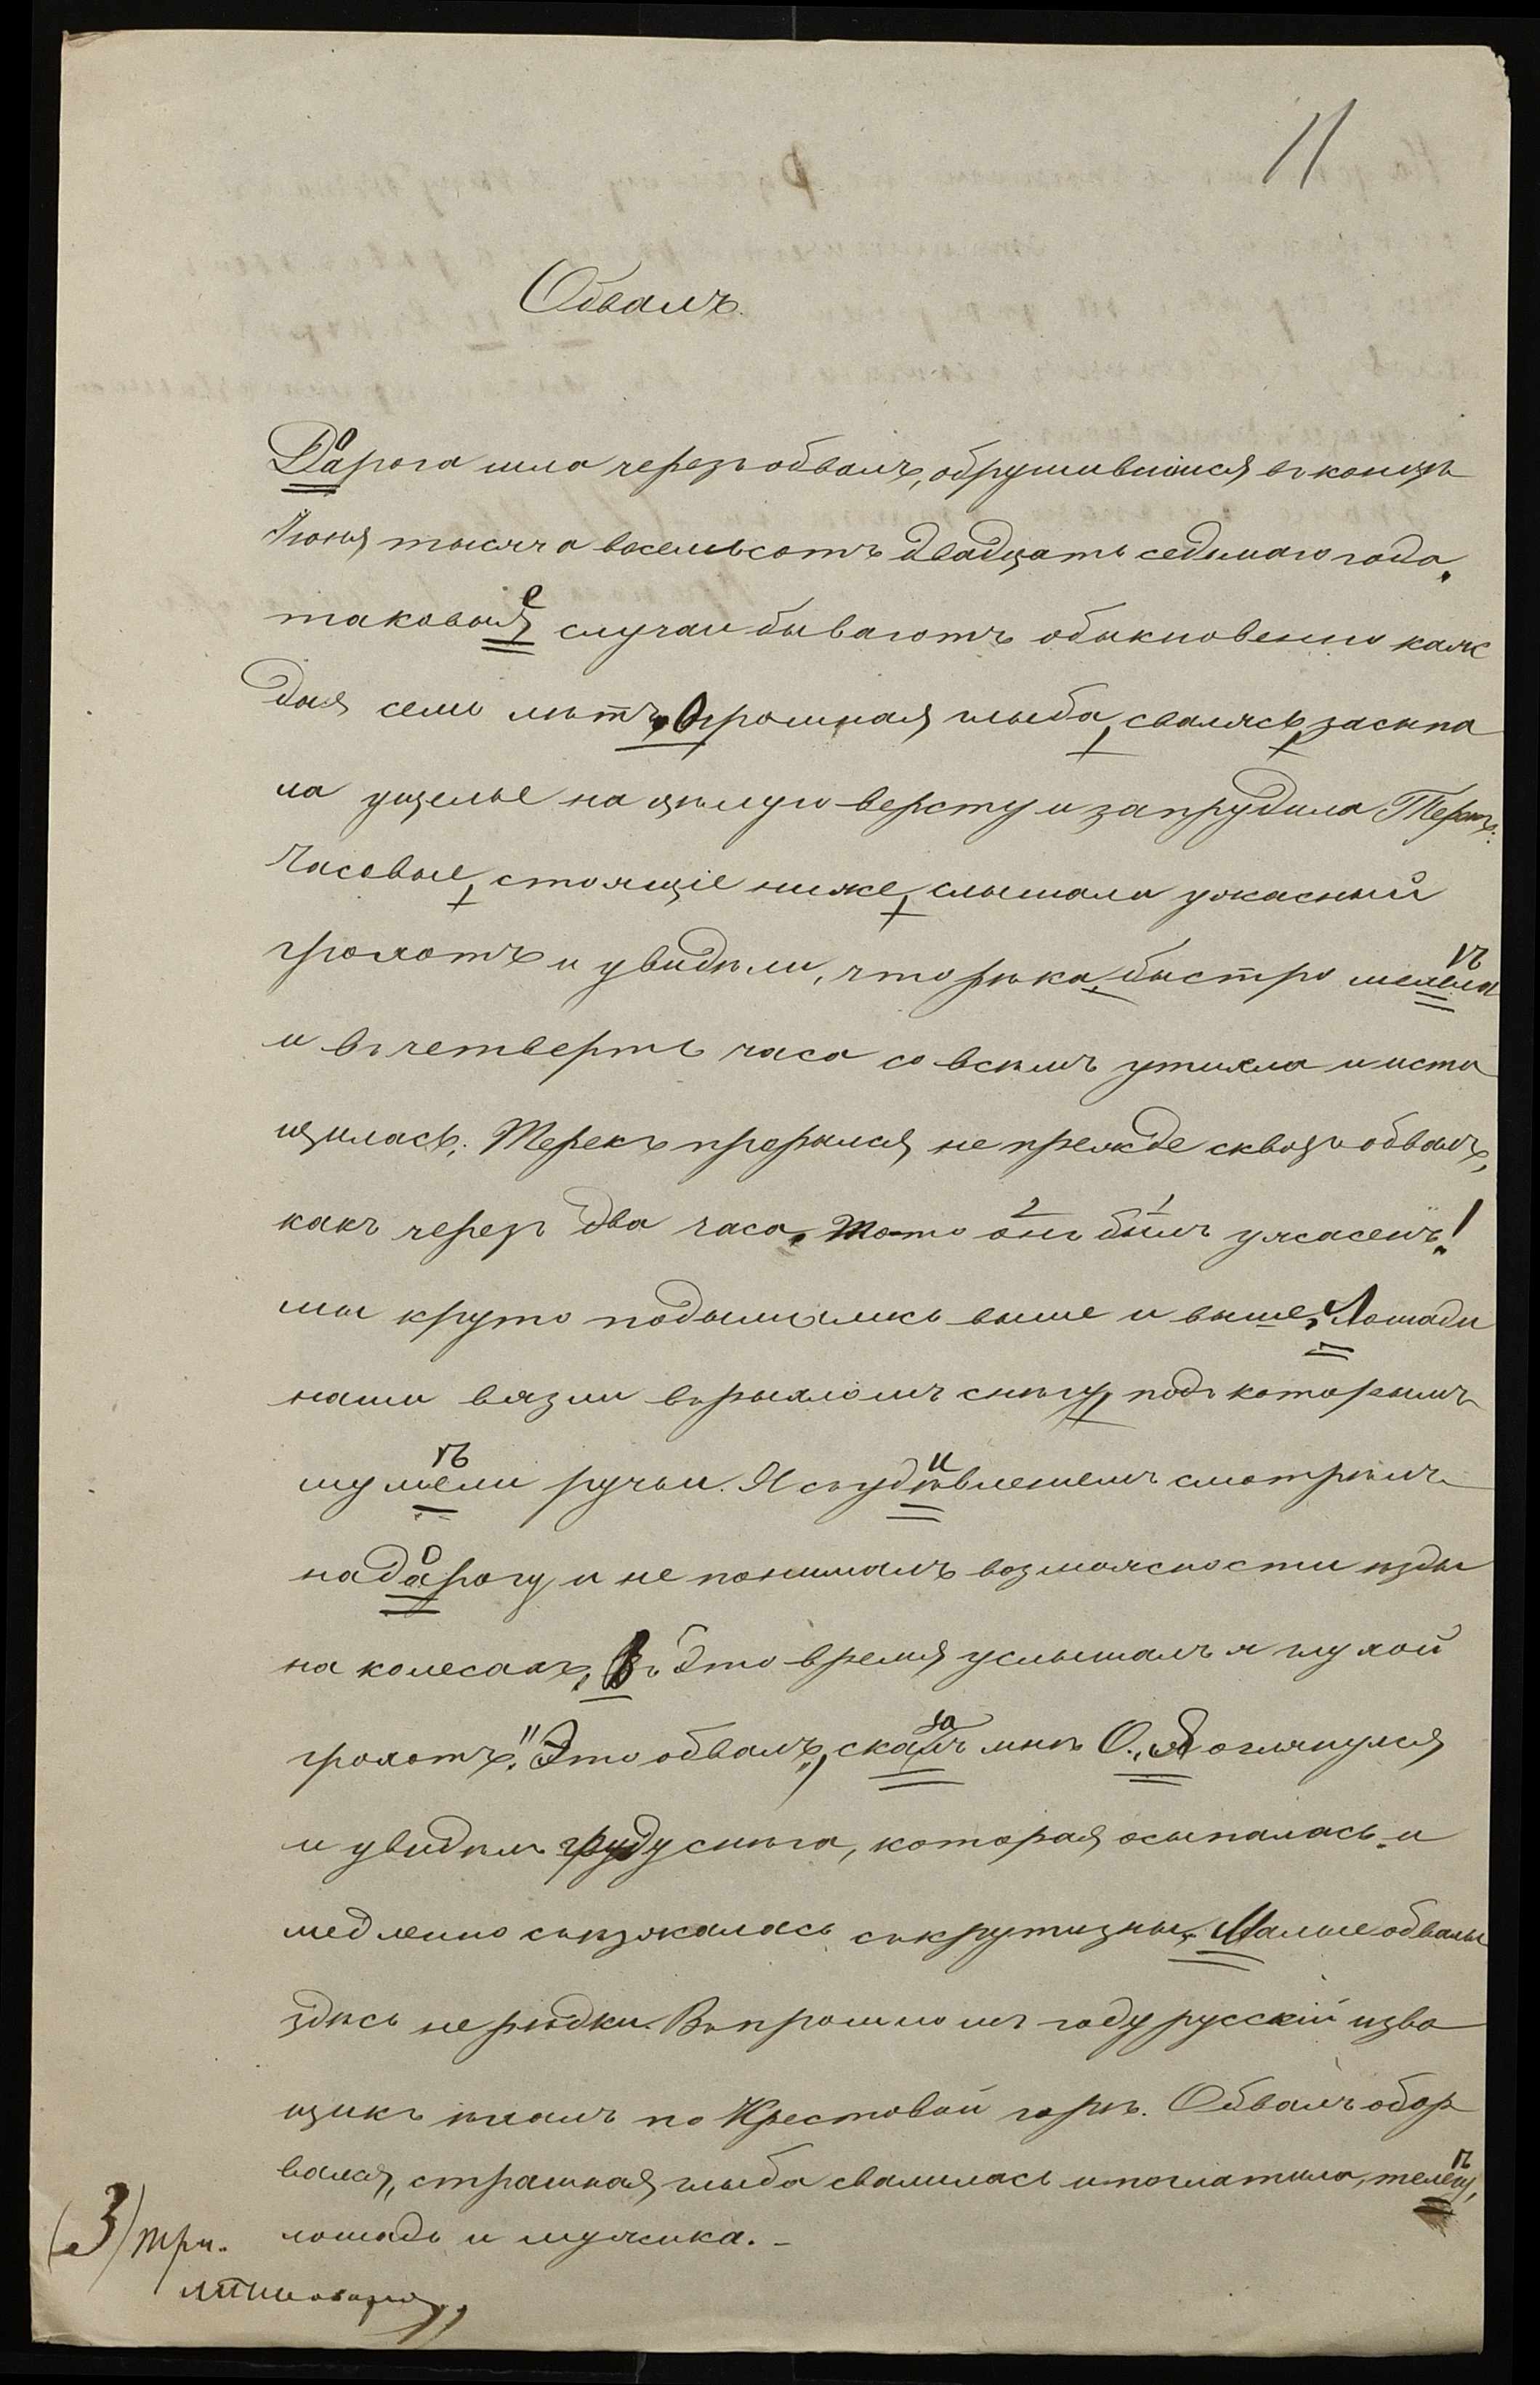 11
Обвалъ.
Дарога шла черезъ обвалъ, обрушившiися въ концѣ
Iюня тысяча воселмьсотъ двадцать седьмаго года.
таковыя случаи бываютъ обыкновенно каж
дыя семь лѣтъ. Огромная глыба, свалясь, засыпа
ла ущелье на цѣлую версту и запрудила Терекъ.
Часовые, стоящiе ниже, слышали ужасный
грохотъ и увидѣли, что рѣка, быстро мелела
и въ четверть часа со всѣмъ утихла и исто
щилась. Терекъ прорылся не прежде сквозь обвалъ,
какъ черезъ два часа. То-то онъ былъ ужасенъ!
мы круто подымались выше и выше. Лошади
наши вязли въ рыхломъ снѣгу, подъ которымъ
шумели ручьи. Я съ удѣвленiемъ смотрѣлъ
на дарогу и не понималъ возможности ѣзды
на колесахъ. Въ это время услышалъ я глухой
грохотъ. "Это обвалъ", сказалъ мнѣ О. Я оглянулся
и увидѣлъ груду снѣга, которая осыпалась и
медленно съѣзжалась съ крутизны. Малые обвалы
здѣсь не рѣдки. Въ прошломъ году русскiй изво
щикъ ѣхалъ по Крестовой горѣ. Обвалъ обор
вался, страшная глыба свалилась и поглатила, телегу,
лошадь и мужика. –
(3) три.